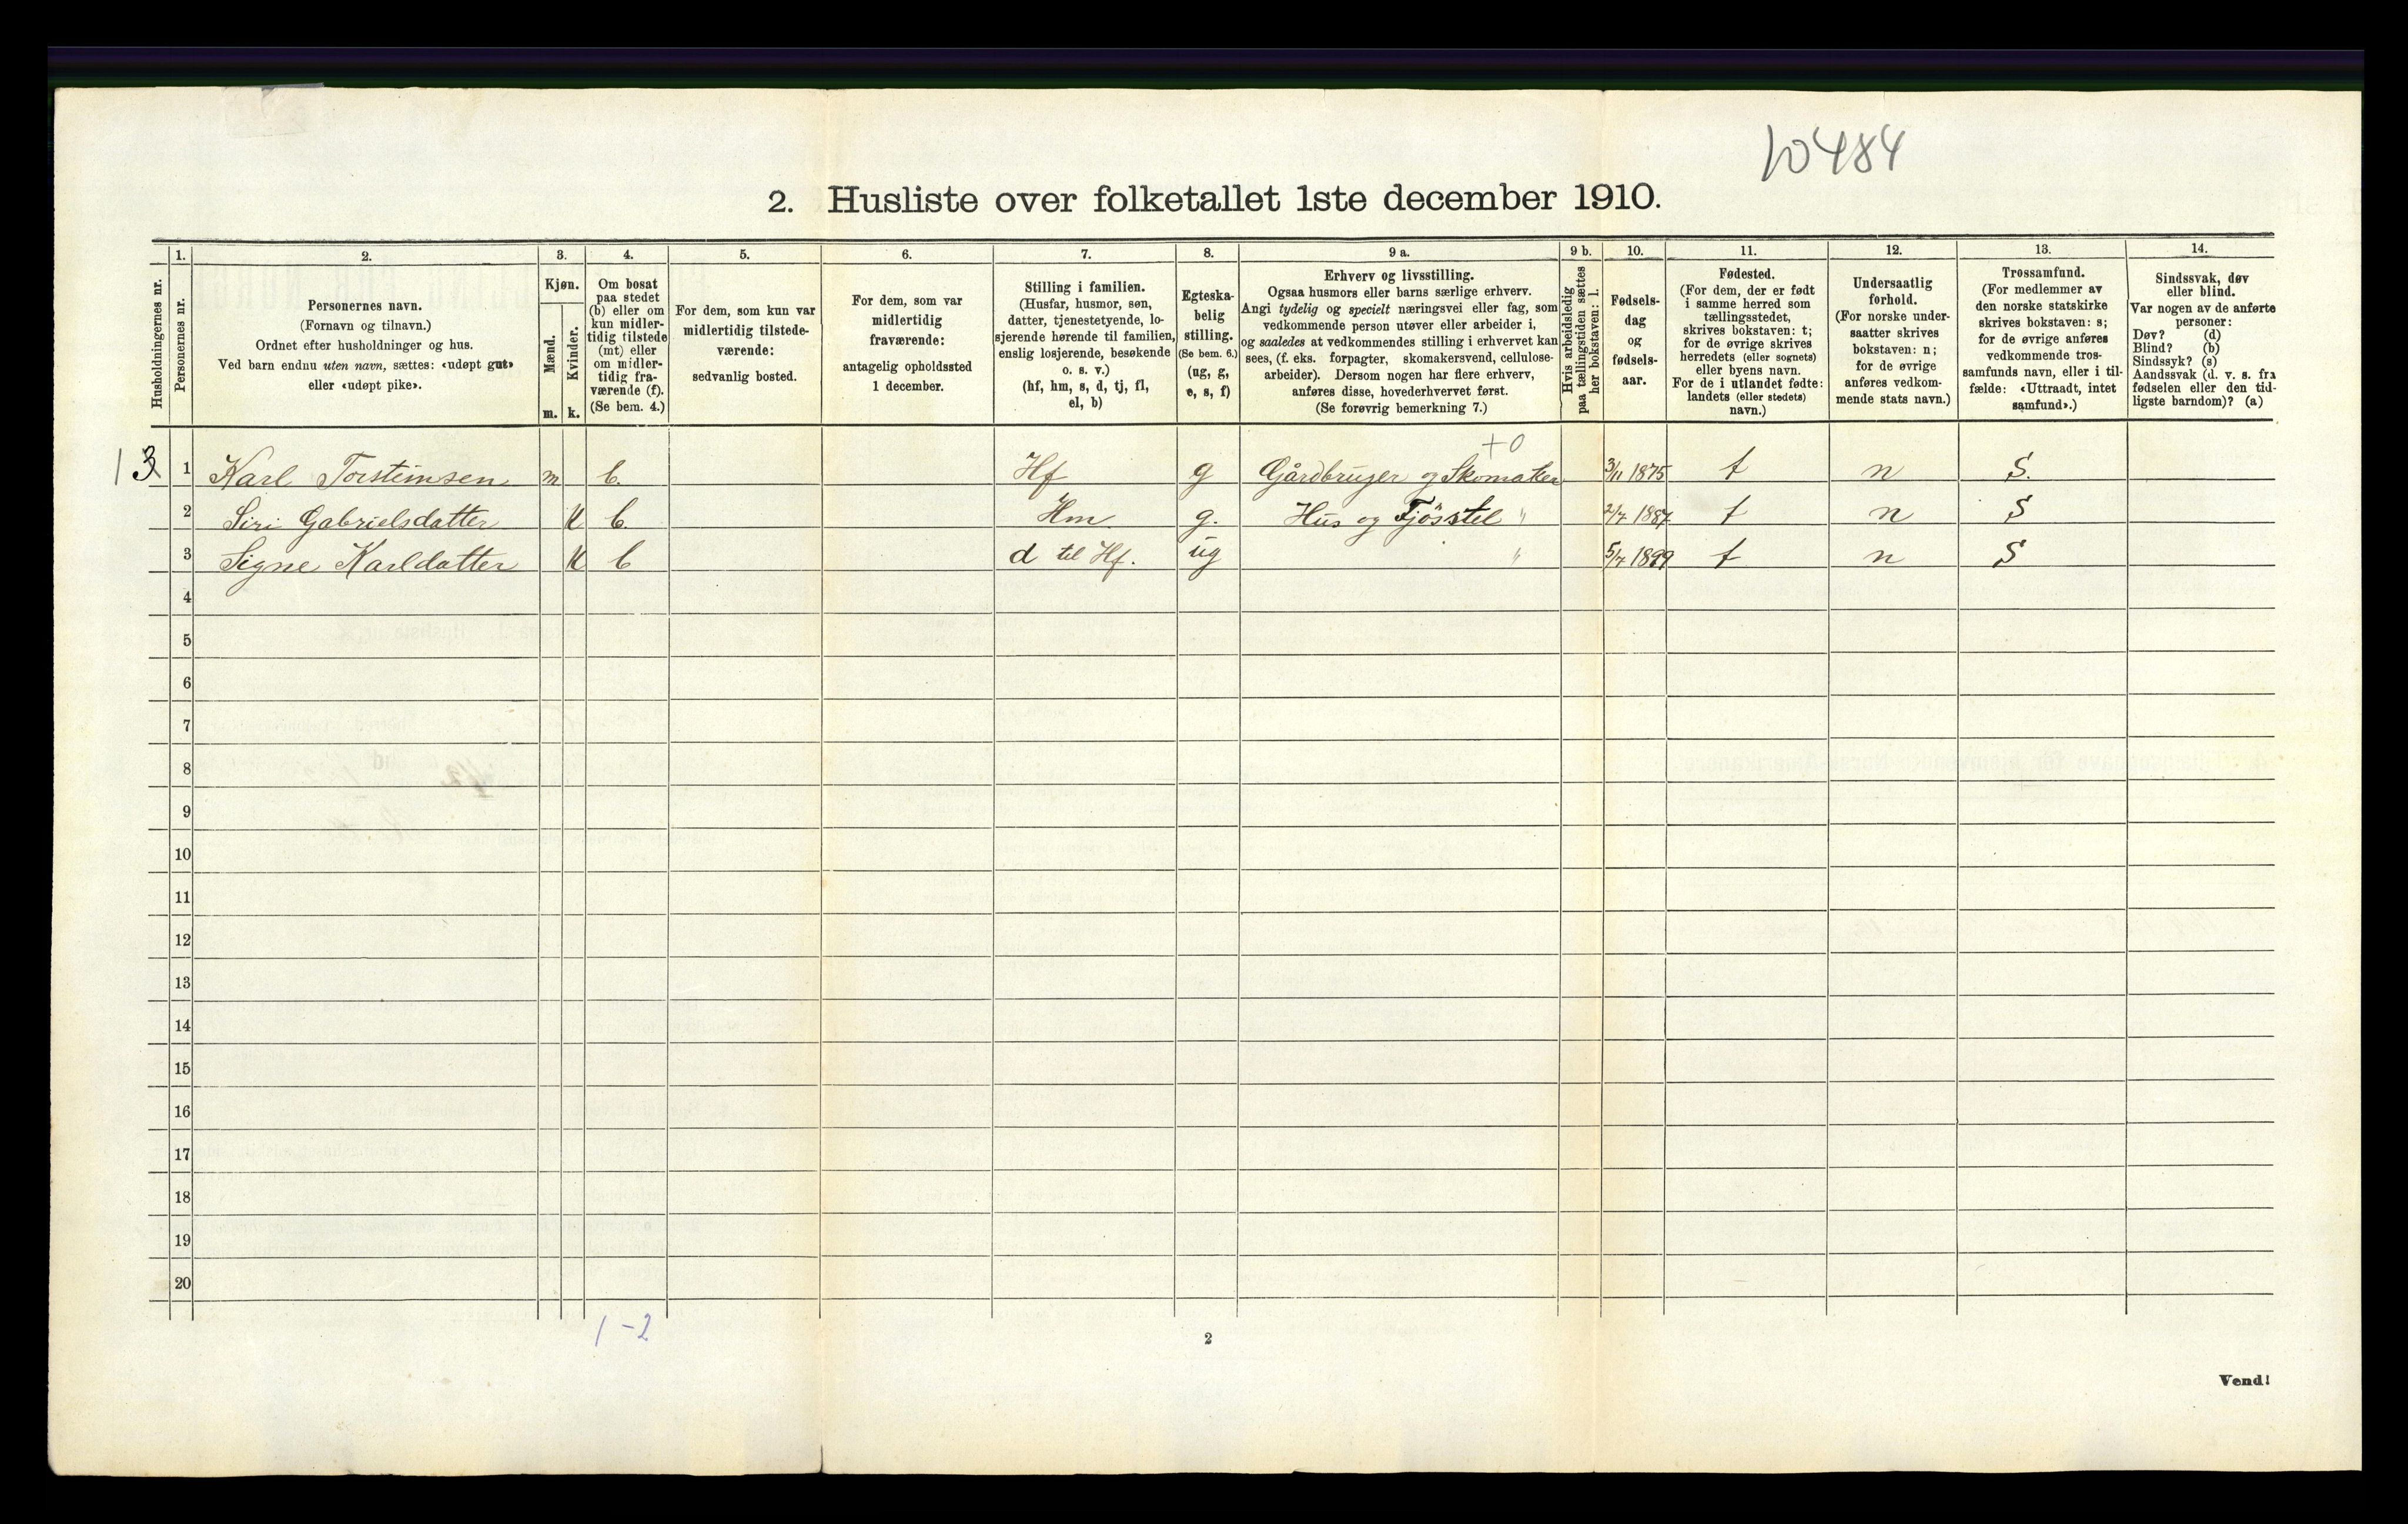 10484
2. Husliste over folketallet 1ste december 1910.
Husholdningernes nr.
1.
Personernes nr.
2.
Personernes navn.
(Fornavn og tilnavn.)
Ordnet efter husholdninger og hus.
Ved barn endnu uten navn, sættes: «udøpt gut»
eller «udøpt pike».
3.
Kjøn.
Mænd.
m.
Kvinder.
k.
4.
Om bosat
paa stedet
(b) eller om
kun midler-
tidig tilstede
(mt) eller
om midler-
tidig fra-
værende (f).
(Se bem. 4.)
5.
For dem, som kun var
midlertidig tilstede-
værende:
sedvanlig bosted.
6.
For dem, som var
midlertidig
fraværende:
antagelig opholdssted
1 december.
7.
Stilling i familien.
(Husfar, husmor, søn,
datter, tjenestetyende, lo-
sjerende hørende til familien,
enslig losjerende, besøkende
o. s. v.)
(hf, hm, s, d, tj, fl,
el, b)
8.
Egteska-
belig
stilling.
(Se bem. 6.)
(ug, g,
e, s, f)
9 a.
Erhverv og livsstilling.
Ogsaa husmors eller barns særlige erhverv.
Angi tydelig og specielt næringsvei eller fag, som
vedkommende person utøver eller arbeider i,
og saaledes at vedkommendes stilling i erhvervet kan
sees, (f. eks. forpagter, skomakersvend, cellulose-
arbeider). Dersom nogen har flere erhverv,
anføres disse, hovederhvervet først.
(Se forøvrig bemerkning 7.)
9 b.
Hvis arbeidsledig
paa tællingstiden sættes
her bokstaven: l.
10.
Fødsels-
dag
og
fødsels-
aar.
11.
Fødested.
(For dem, der er født
i samme herred som
tællingsstedet,
skrives bokstaven: t;
for de øvrige skrives
herredets (eller sognets)
eller byens navn.
For de i utlandet fødte:
landets (eller stedets)
navn.)
12.
Undersaatlig
forhold.
(For norske under-
saatter skrives
bokstaven: n;
for de øvrige
anføres vedkom-
mende stats navn.)
13.
Trossamfund.
(For medlemmer av
den norske statskirke
skrives bokstaven: s;
for de øvrige anføres
vedkommende tros-
samfunds navn, eller i til-
fælde: «Uttraadt, intet
samfund».)
14.
Sindssvak, døv
eller blind.
Var nogen av de anførte
personer:
Døv? (d)
Blind? (b)
Sindssyk? (s)
Aandssvak (d. v. s. fra
fødselen eller den tid-
ligste barndom)? (a)
+0
13 1 Karl Torsteinsen m b. Hf g Gårdbruger og Skomaker 3/11 1875 t n S.
2 Siri Gabrielsdatter K b. Hm. g. Hus og Fjösstel " 2/7 1887 t n S
3 Signe Karldatter K b d til Hf. ug " 5/7 1899 t n S
4
5
6
7
8
9
10
11
12
13
14
15
16
17
18
19
20
1-2
2
Vend!